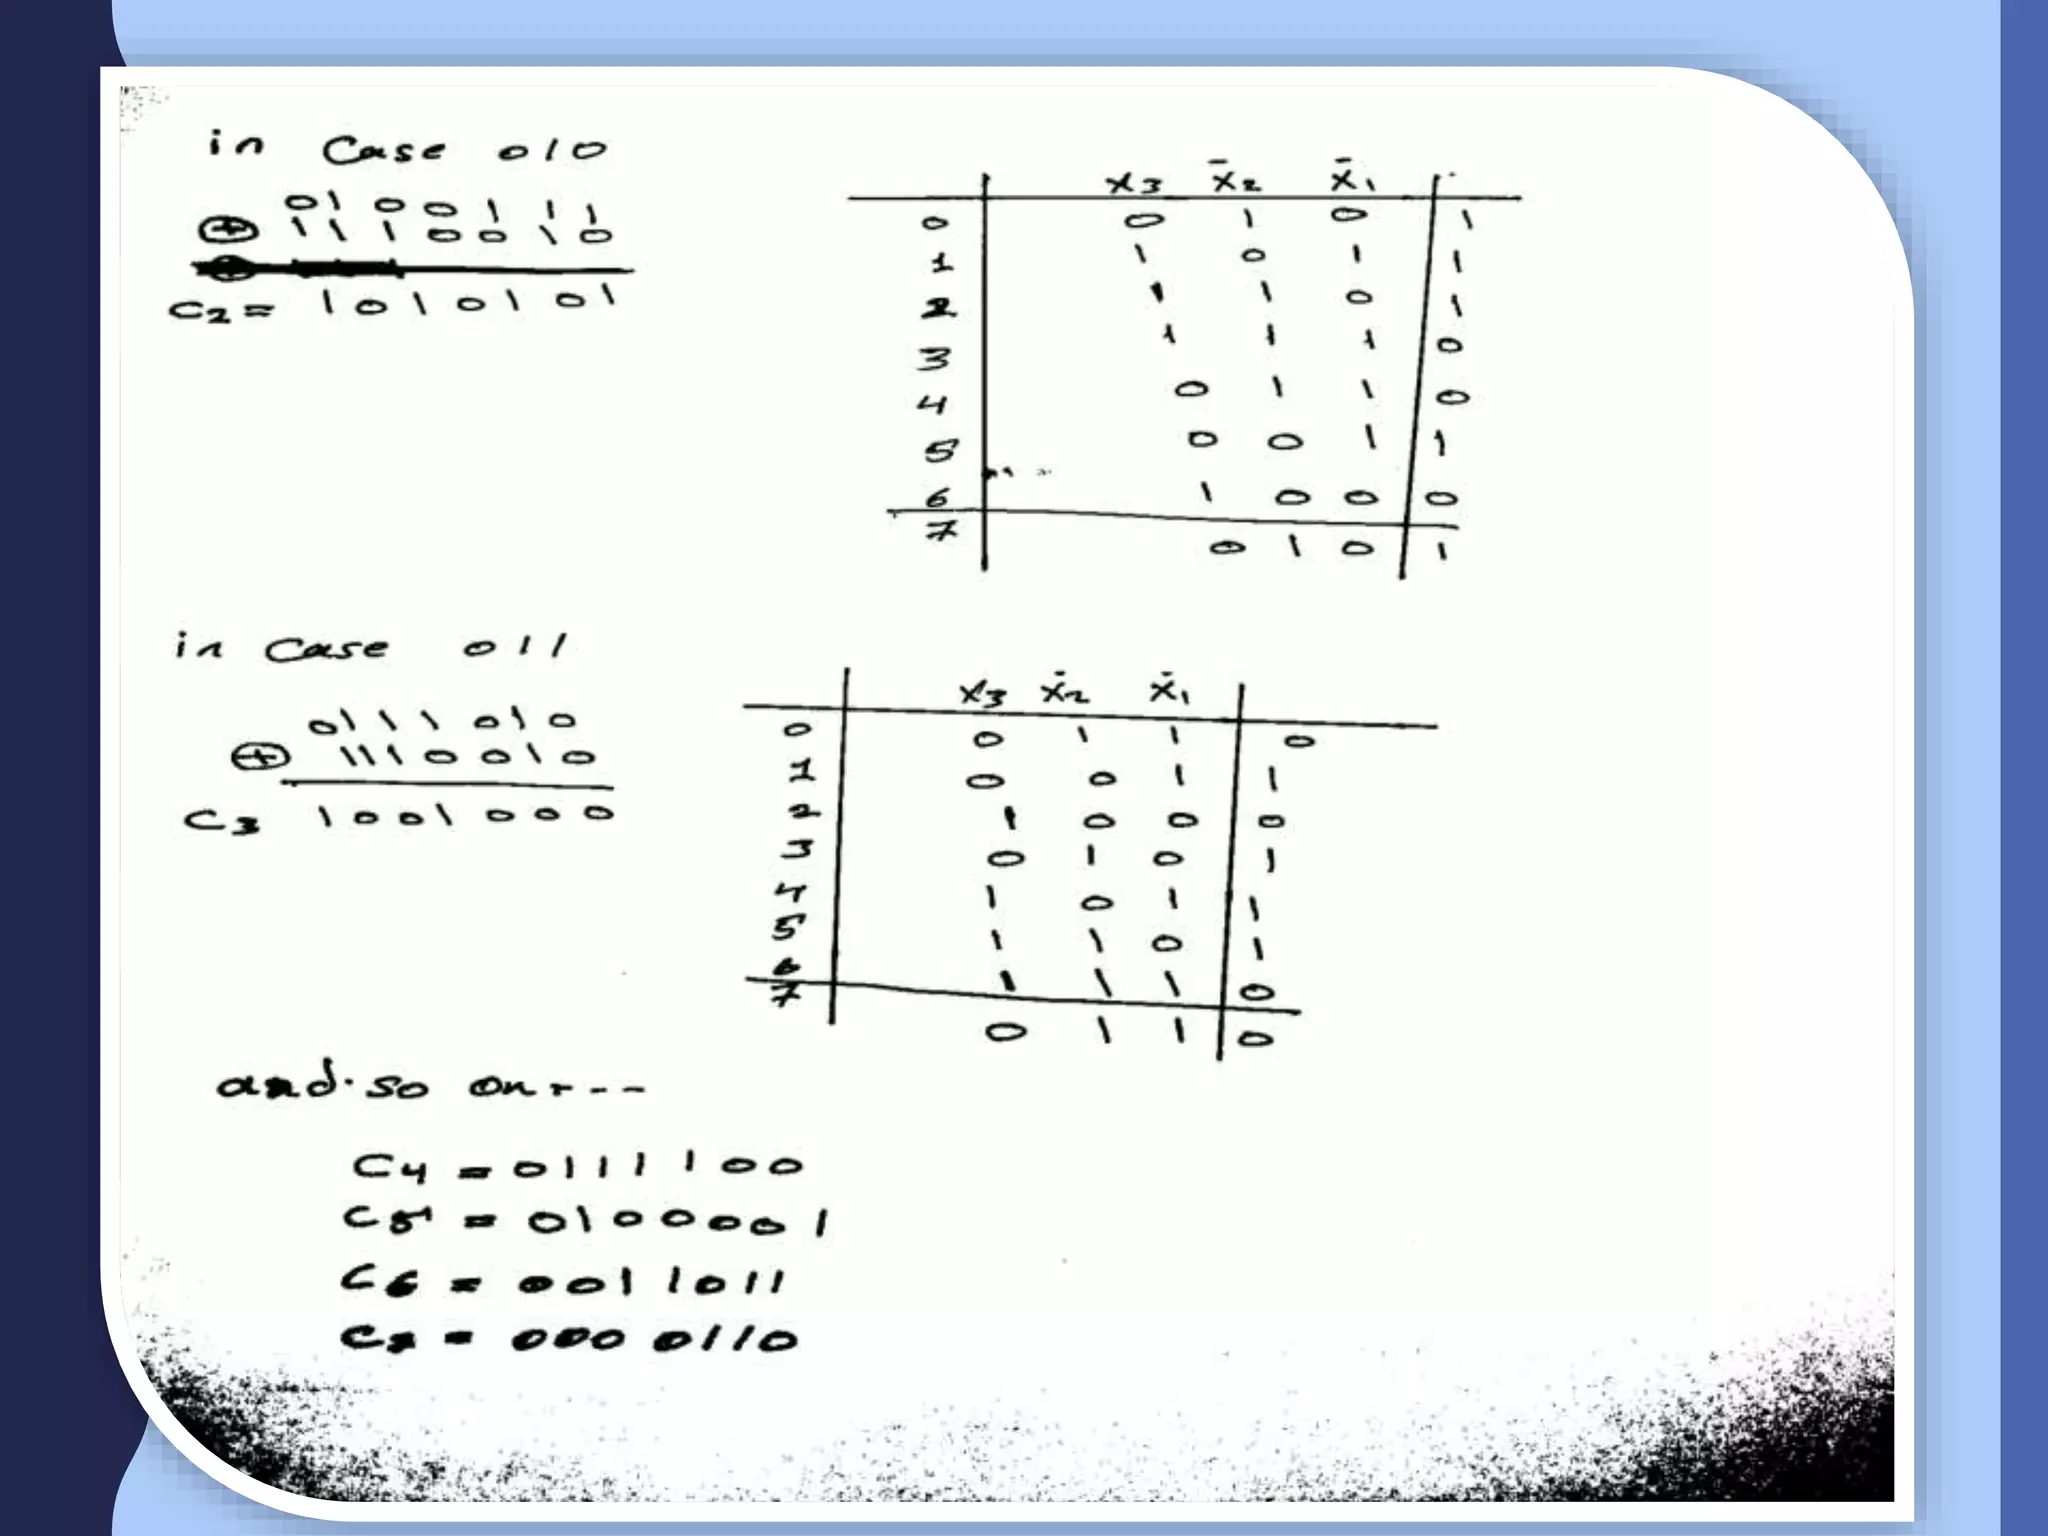 in Case 010
0100111
⊕ 1110010
C2 = 1010101
x3 x̄2 x̄1
0 0 1 0 1
1 1 0 1 1
2 1 1 0 1
3 1 1 1 0
4 0 1 1 0
5 0 0 1 1
6 1 0 0 0
7 0 1 0 1
in Case 011
0111010
⊕ 1110010
C3 1001000
x3 ẋ2 ẋ1
0 0 1 1 0
1 0 0 1 1
2 1 0 0 0
3 0 1 0 1
4 1 0 1 1
5 1 1 0 1
6 1 1 1 0
7 0 1 1 0
and so on - - -
C4 = 0111100
C5 = 0100001
C6 = 0011011
C7 = 0000110